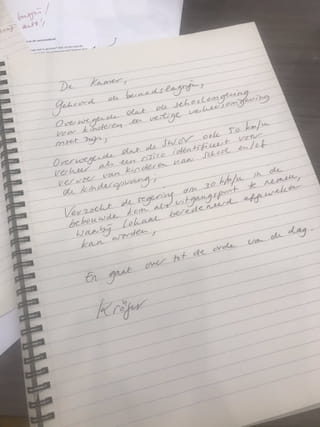 De Kamer,
Gehoord de beraadslaging,
Overwegende dat de schoolomgeving
voor kinderen een veilige verkeersomgeving
moet zijn,
Overwegende dat de SWOV ook 50 km/u
verkeer als een risico identificeert voor
vervoer van kinderen van school en/of
de kinderopvang,
Verzoekt de regering om 30 km/u in de
bebouwde kom als uitgangspunt te nemen,
waarbij lokaal beredeneerd afgeweken
kan worden,
En gaat over tot de orde van de dag.
Kröger